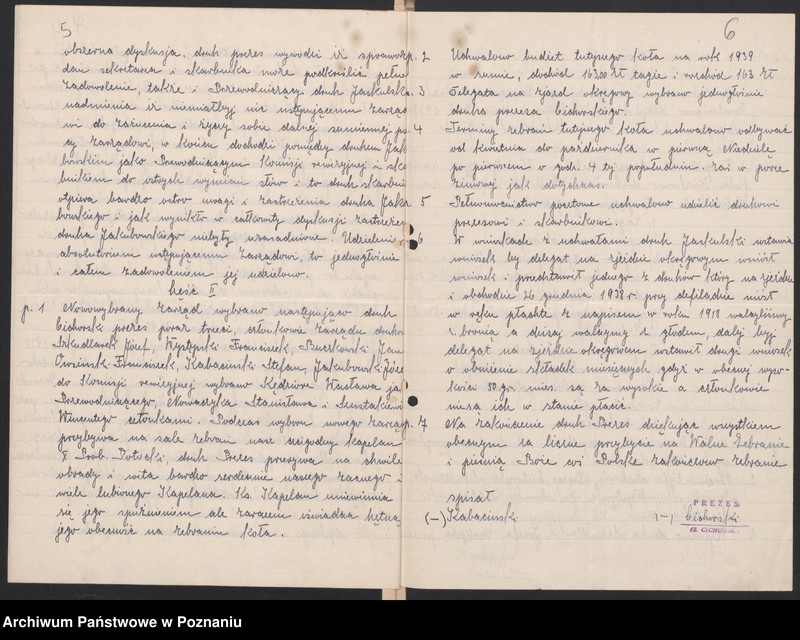 5
obszerna dyskusja. druh prezes wywodzi iż sprawozp.
dań sekretarza i skarbnika może podkreślić pełne
zadowolenie, także i Przewodniczący druh Jaskulski
nadmienia iż niema nic ustępującemu zarządo
wi do zarzucenia i życzy sobie dalszej sumiennej pra
cy zarządowi, w końcu dochodzi pomiędzy druhem Jaku
bowskim jako Przewodniczącym Komisji rewizyjnej i skar
bnikiem do ostrych wymian słów i to druh skarbnik
odpiera bardzo ostro uwagi i zastrzeżenia druha Jaku
bowskiego i jak wynikło w całkowitej dyskusji zastrzeżenia
druha Jakubowskiego niebyły uzasadnione. Udzielenie
absolutorium ustępującemu Zarządowi, to jednogłośnie
i całem zadowoleniem jej udzielono.
Część II
p. 1 Nowowybrany Zarząd wybrano następująco druh
Cichorski prezes poraz trzeci, członkowie zarządu druhowie
Szkudlarek Józef, Krystyński Franciszek, Buczkowski Jan
Owsiński Franciszek, Kabaciński Stefan, Jakubowski Józef
do Komisji rewizyjnej wybrano Kędziora Wacława ja
Przewodniczącego, Nowaczyka Stanisława i
Wincentego członkami. Podczas wyboru nowego zarządu
przybywa na salę zebrań nasz czcigodny kapelan
X Prob. Potocki, druh Prezes przerywa na chwilę
obrady i wita bardzo serdecznie naszego zacnego i
wiele lubianego Kapelana. Ks. Kapelan uniewinnia
się jego spóźnieniem ale zarazem oświadcza chętną
jego obecność na zebraniu koła.
6
p. 2 Uchwalono budżet tutejszego koła na rok 1939
w sumie, dochód 163,00 zł także i rozchód 163 zł
3 Delegata na zjazd okręgowy wybrano jednogłośnie
druha prezesa Cichorskiego.
4 Terminy zebrań tutejszego koła uchwalono odbywać
od kwietnia do października w pierwszą Niedzielę
po pierwszem o godz. 4 tej popołudniu. zaś w porze
zimowej jak dotychczas.
5 Pełnomocnictwo pocztowe uchwalono udzielić druhowi
prezesowi i skarbnikowi.
6 W wnioskach z uchwałami druh Jaskulski wstawia
wniosek by delegat na zjeździe okręgowym wniósł
wniosek i przedstawił jednego z druhów który na zjeździe
i obchodzie 26 grudnia 1938 r przy defiladzie niósł
w ręku płachtę z napisem w roku 1918 walczyliśmy
z bronią a dzisiaj walczymy z głodem, dalej by
delegat na zjeździe okręgowem wstawił drugi wniosek
o obniżenie składek miesięcznych gdyż w obecnej wyso-
kości 50 gr. mies. są za wysokie a członkowie
niesą ich w stanie płacić.
p. 7 Na zakończenie druh Prezes dziękując wszystkiem
obecnym za liczne przybycie na Walne Zebranie
i pieśnią Boże coś Polskę zakończono zebranie
spisał
(-) Kabaciński
PREZES
(-) Cichorski
Archiwum Państwowe w Poznaniu